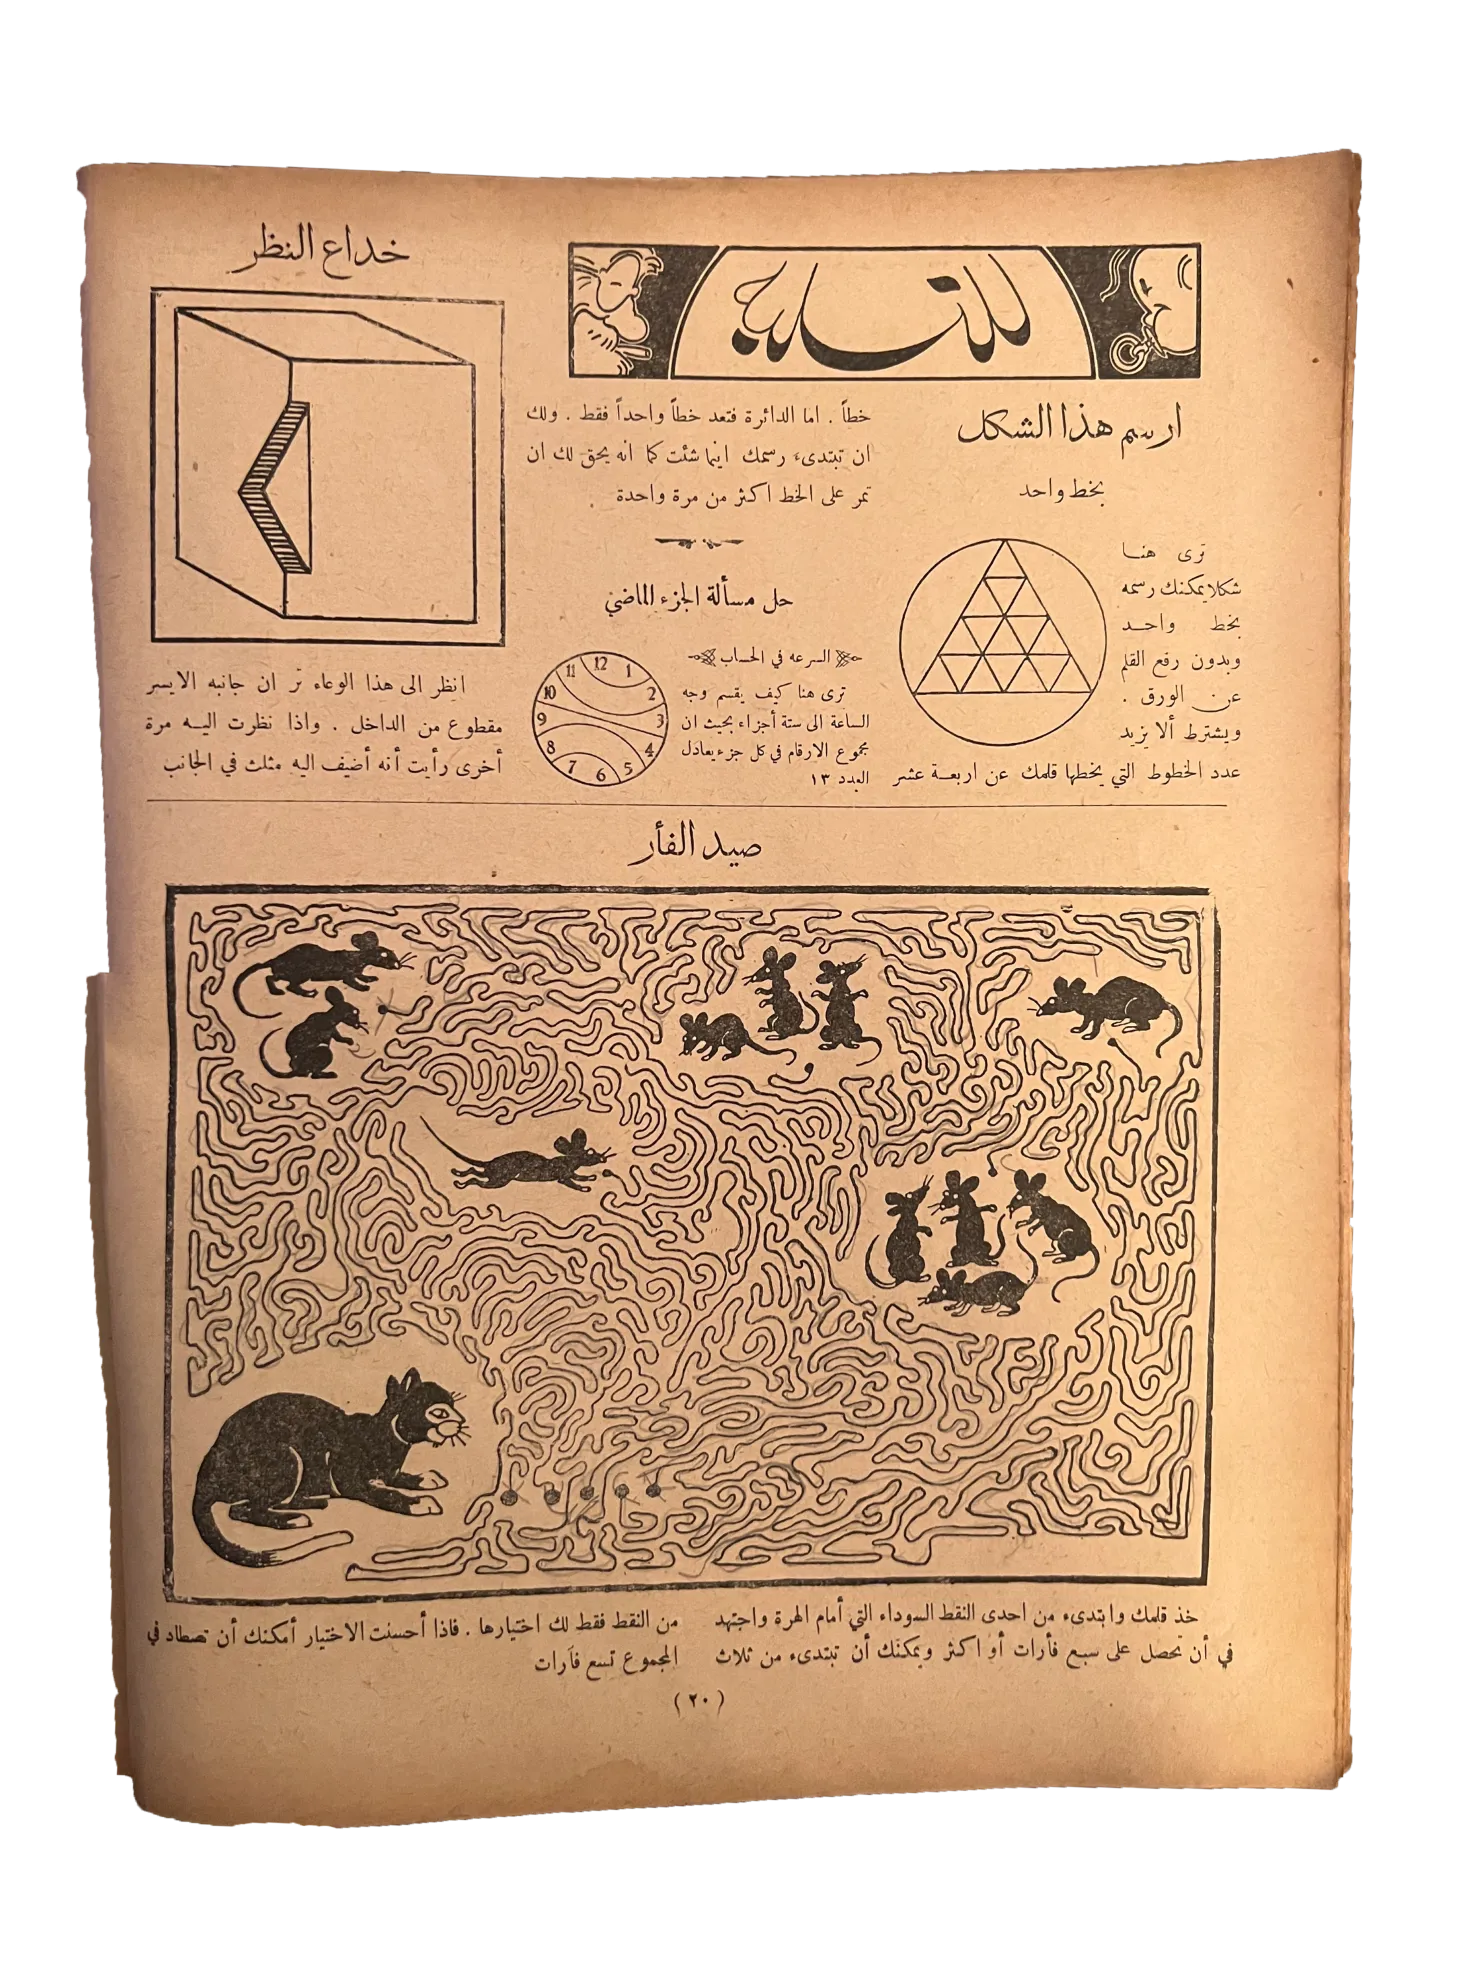 للتسلية
ارسم هذا الشكل
بخط واحد
ترى هنا
شكلا يمكنك رسمه
بخط واحد
وبدون رفع القلم
عن الورق .
ويشترط ألا يزيد
عدد الخطوط التي يخطها قلمك عن اربعة عشر
خطاً . اما الدائرة فتعد خطاً واحداً فقط . ولك
ان تبتدىء رسمك اينما شئت كما انه يحق لك ان
تمر على الخط اكثر من مرة واحدة
حل مسألة الجزء الماضي
السرعه في الحساب
ترى هنا كيف يقسم وجه
الساعة الى ستة أجزاء بحيث ان
مجموع الارقام في كل جزء يعادل
العدد ١٣
12
1
2
3
4
5
6
7
8
9
10
11
خداع النظر
انظر الى هذا الوعاء تر ان جانبه الايسر
مقطوع من الداخل . واذا نظرت اليه مرة
أخرى رأيت أنه أضيف اليه مثلث في الجانب
صيد الفأر
خذ قلمك وابتدىء من احدى النقط السوداء التي أمام الهرة واجتهد
في أن تحصل على سبع فأرات أو اكثر ويمكنك أن تبتدىء من ثلاث
من النقط فقط لك اختيارها . فاذا أحسنت الاختيار أمكنك أن تصطاد في
المجموع تسع فأرات
( ٢٠ )